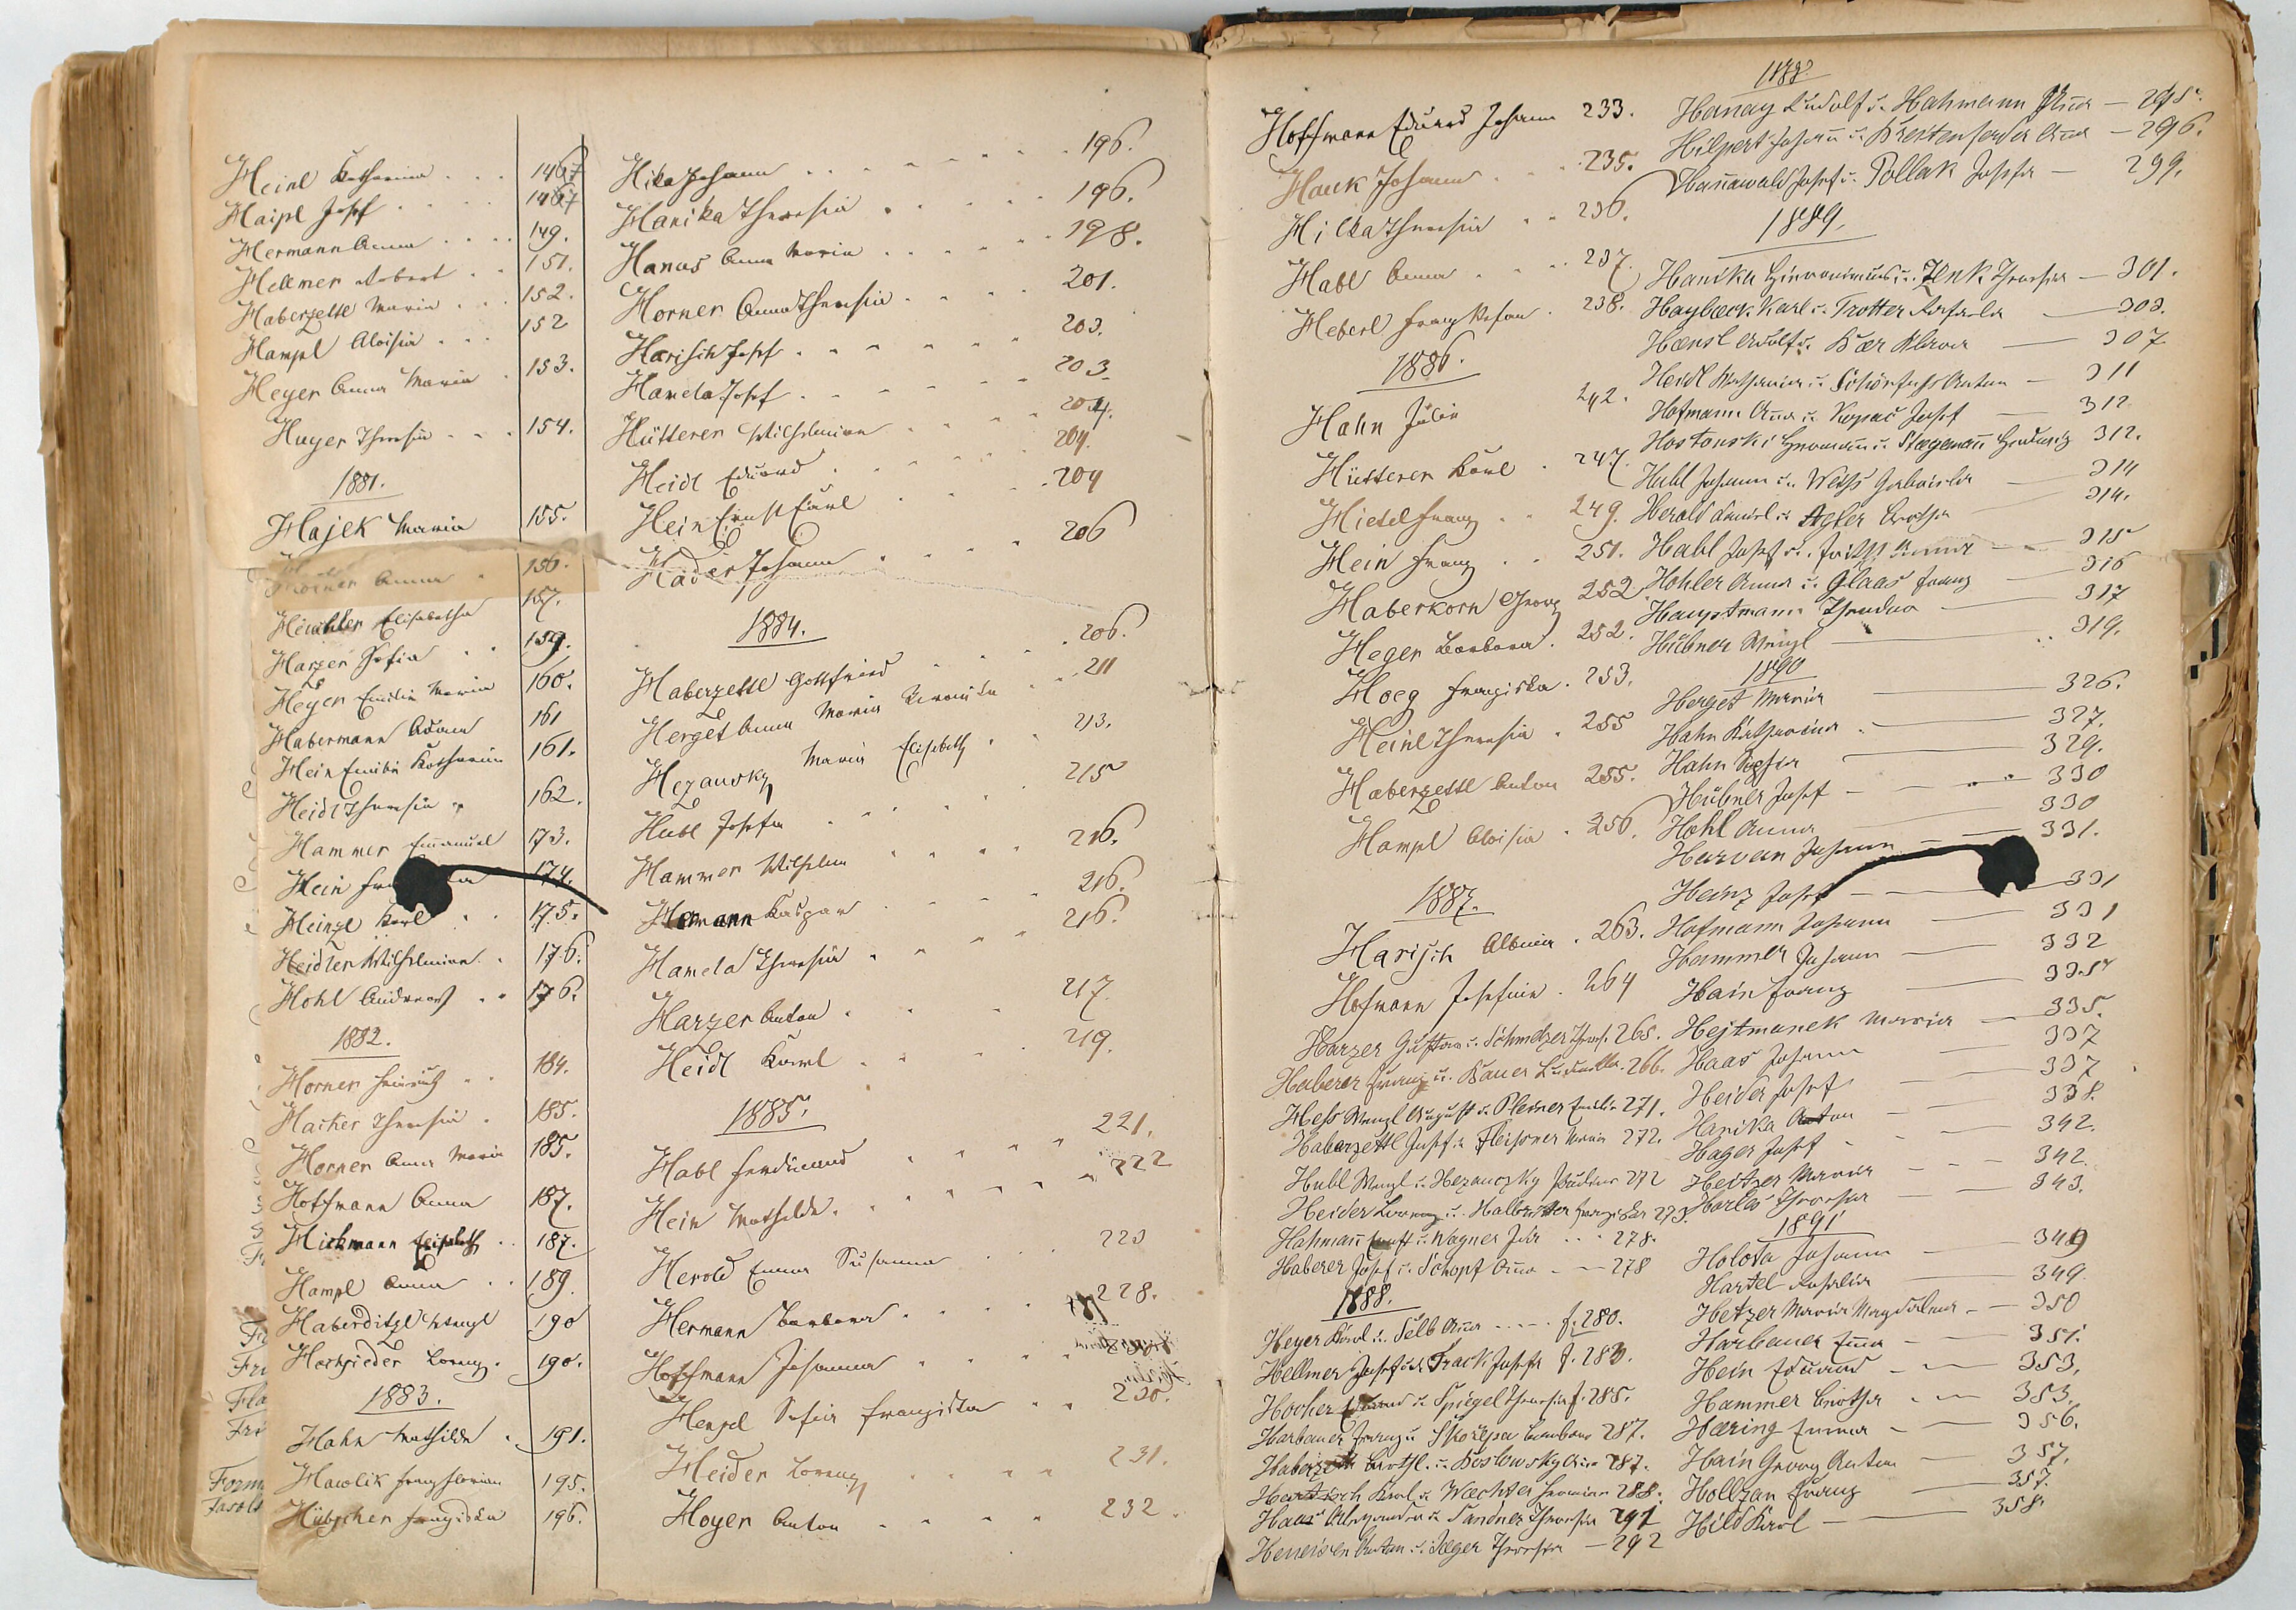 Heinl Katharina . . . 146
Haipl Josef . . . . 146
Hermann Anna . . . . 149.
Hellmer Robert . . 151.
Haberzettl Maria . . . 152.
Hampl Aloisia . . . 152
Heger Anna Maria . 153.
Huyer Theresia . . . 154.
1881.
Hajek Maria 155.
Horner Anna . 156.
Elisabetha 157.
Harzer Sofia . . 159.
Heger Emilie Maria 160.
Habermann Adam 161
Hein Emilie Katharina 161.
Heidl Theresia . 162.
Hammer Emanuel 173.
Hein 174.
Heinzl Karl . . 175.
Heidler Wilhelmine . 176.
Hohl Andreas . . 176.
1882.
Horner Heinrich . . 184.
Hacker Theresia . 185.
Horner Anna Maria 185.
Hoffmann Anna 187.
Hickmann Elisabeth . . 187.
Hampl Anna . . 189.
Haberditzl Wenzl 190
Hochsieder Lorenz . 190.
1883.
Hahn Mathilde . 191.
Hawlik Franz Florian 195.
Hübscher Franziska 196.
Hilka Johann . . . . . . . 196.
Hanika Theresia . . . . . 196.
Hanus Anna Maria . . . . . . 198.
Horner Anna Theresia . . . . 201.
Harisch Josef . . . . . . 203.
Hamela Josef . . . . . . 203.
Hütterer Wilhelmine . . . . 204.
Heidl Eduard . . . . . . 204.
Hein Ernst Carl . . . . 204
Hader Johann . . . . 206
1884.
Haberzettl Gottfried . . . . 206.
Herget Anna Maria Veronika . . 211
Hezansky Maria Elisabeth . . 213.
Hubl Josefa . . . . . 215
Hammer Wilhelm . . . . 216.
Hermann Kaspar . . . . 216.
Hamela Theresia . . . . 216.
Harzer Anton . . . 217.
Heidl Karl . . . . 219.
1885.
Habl Ferdinand . . . . . 221.
Hein Mathilde . . . . . . . 222
Herold Emma Susanna . . . 223
Hermann Barbara . . . . . 228.
Hoffmann Johanna . . . .
Henzel Sofia Franziska . . 230.
Heider Lorenz . . . . 231.
Hoyer Anton . . . . 232.
Hoffmann Eduard Johann 233.
Hauk Johann . . . 235.
Hilka Theresia . . 236.
Habl Anna . . . . 237.
Heberl Franz Stefan . 238.
1886.
Hahn Julie 242.
Hütterer Karl . 247.
Hietel Franz . . 249.
Hein Franz . . 251.
Haberkorn Georg 252
Heger Barbara . 252.
Hoeg Franziska . 253.
Heinl Theresia . 255
Haberzettl Anton 255.
Hampl Aloisia . 256.
1887.
Harisch Albine . 263.
Hofmann Josefine . 264
Harzer Gustav u. Schmelzer Theres. 265.
Haberer Franz u. Bauer Ludmilla . 266.
Hess Wenzl August u. Pleiner Emilie 271.
Haberzettl Josef u. Fleissner Maria 272.
Hubl Wenzl u. Hezanczky Pauline 272
Heider Lorenz u. Halbritter Franziska 273.
Hahmann u. Wagner . . . 278.
Haberer Josef u. Schopf Anna - - 278
1888.
Heyer Karl u. Selb Anna - - - - f. 280.
Hellmer Josef u. Track Josefa f. 283.
Hocher u. Spiegel Theresia f. 285.
Harbauer Franz u. Skorepa Barbara 287.
Haberzettl Barth. u. Koslowsky Anna 287.
Karl u. Waechter Hermine 288.
Haas Alexander u. Sandner Theresia 291
Anton u. Jäger Theresia - 292
1888.
Hanay Rudolf u. Hahmann Anna - 295.
Hilpert Johann u. Breitenfelder Anna - 296.
Hanawald Josef u. Pollak Josefa - 299.
1889.
Hanika Hieronimus u. Zenk Theresia - 301.
Haybaeck Karl u. Trotter Rosalia - 303.
Haensl Adolf u. Baer Klara - 307
Heidl Katharina u. Schönfuss Anton - 311
Hofmann Anna u. Kopac Josef - 312.
Hostonski Hermann u. Stegemann Hedwig 312.
Habl Johann u. Weiss Gabriela - 314
Herold Daniel u. Agler Bertha - 314.
Habl Josef u. Fritsch Anna - 315
Hohler Anna u. Glaas Franz - 316
Hauptmann Theodor - 317
Hübner Wenzl - 319.
1890
Herget Maria - 326.
Hahn Katharina . - 327.
Hahn Sofia - 329.
Hübner Josef - 330
Hohl Anna - 330
Johann - 331.
Heinz Josef - 331
Hofmann Johann - 331
Hammer Johann - 332
Hain Franz - 335
Hejtmanek Maria - 335.
Haas Johann - 337
Heider Josef - 337
Hanika Anton - 338.
Hager Josef - 342.
Heitzer Maria - 342.
Harles Theresia - 343.
1891
Holota Johann - 349
Hartel Rosalia - 349.
Hetzer Maria Magdalena - 350
Harbauer Emma - 351.
Hein Eduard - 353.
Hammer Bertha - 353.
Haering Emma - 356.
Hain Georg Anton - 357.
Hollzan Franz - 357.
Hild Karl - 358.